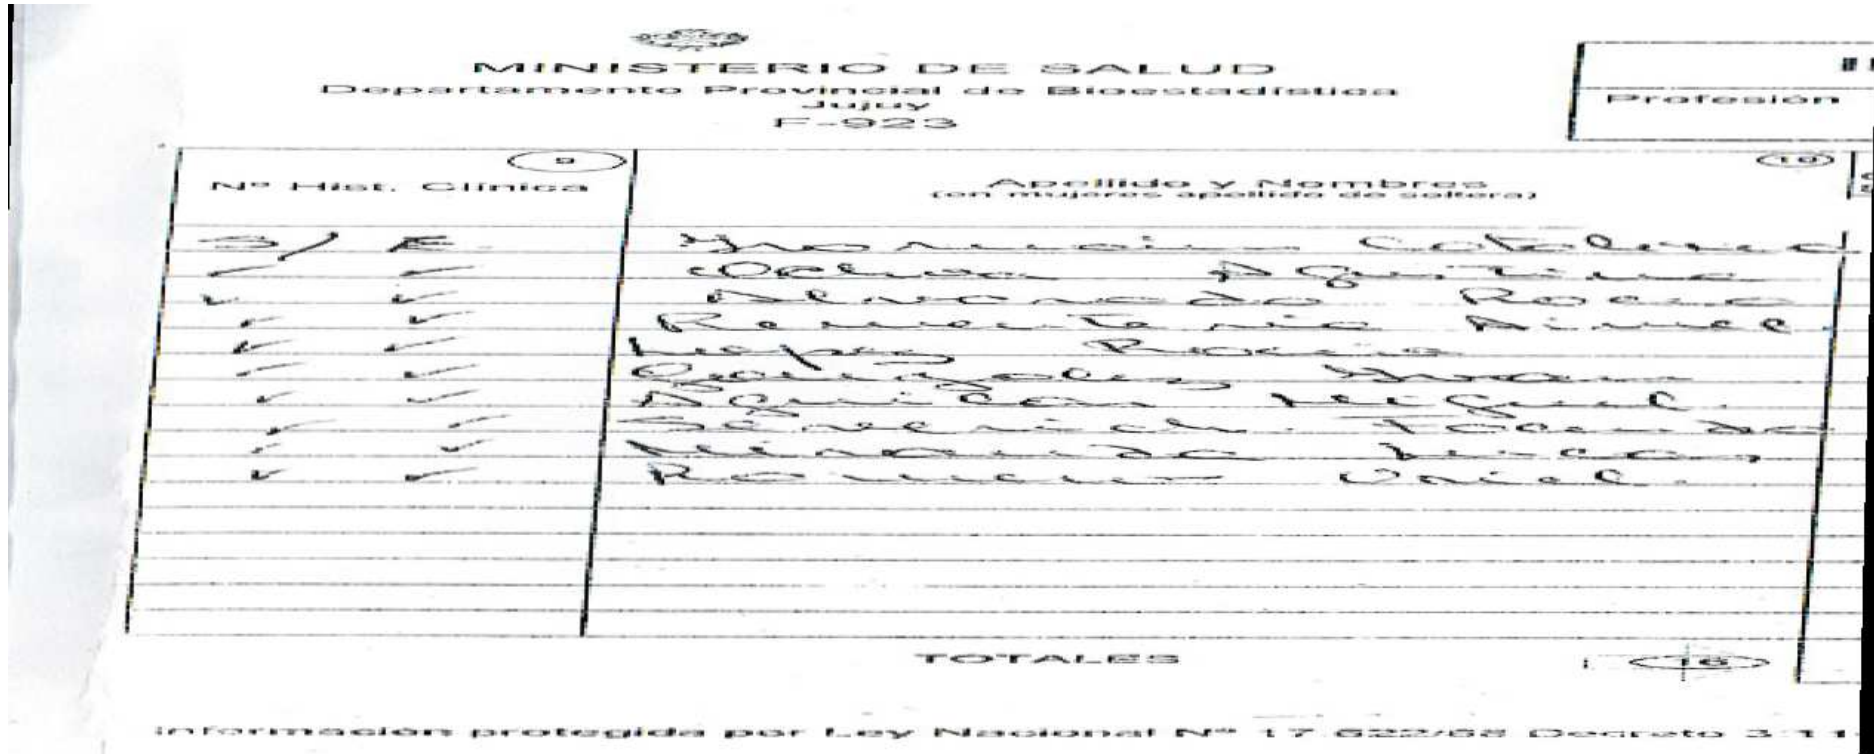 MINISTERIO DE SALUD
Departamento Provincial de Bioestadística
Jujuy
F-923
Profesión
9
10
Nº Hist. Clínica
Apellido y Nombres
(en mujeres apellido de soltera)
S/ E.
Ochoa Agustina
Alvarado Rocio
Rementeria Aimel.
Lopez Rocio
Gonzalez
Aguilar Miguel.
Facundo
Miranda Lucas
Romero Uriel.
TOTALES
16
Información protegida por Ley Nacional Nº 17.622/68 Decreto 3.11